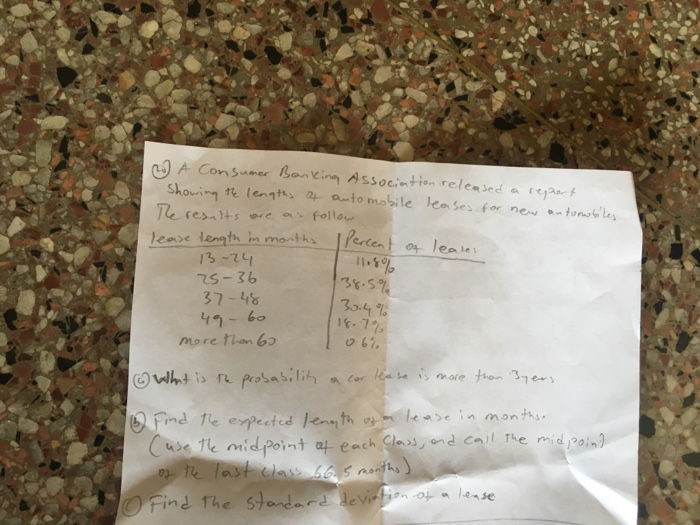 20) A Consumer Banking Association released a report
Showing the lengths of automobile leases for new automobiles
The results are as follow
lease length in months Percent of leases
13-24 11.8%
25-36 38.5%
37-48 30.4%
49-60 18.7%
more than 60 0.6%
a) What is the probability a car lease is more than 3 years
b) Find the expected length of a lease in months.
(use the midpoint of each class, and call the midpoint
of the last class 66.5 months)
c) Find the standard deviation of a lease